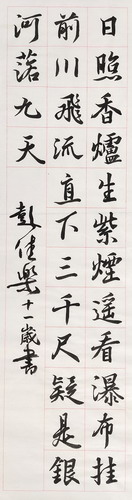 日照香爐生紫煙遙看瀑布挂
前川飛流直下三千尺疑是銀
河落九天
彭佳樂十一歲書